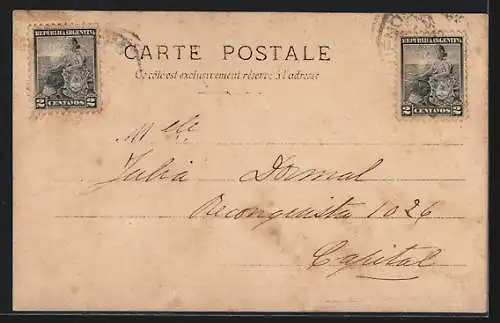 REPUBLICA ARGENTINA
2 CENTAVOS 2
REPUBLICA ARGENTINA
2 CENTAVOS 2
CARTE POSTALE
Ce côté est exclusivement réservé à l'adresse
Mlle
Julia Dormal
Reconquista 1026
Capital